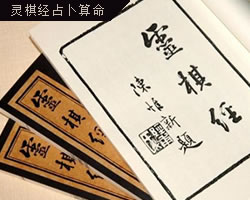 灵棋经占卜算命
靈棋經
陳 新題
靈棋經
靈棋經